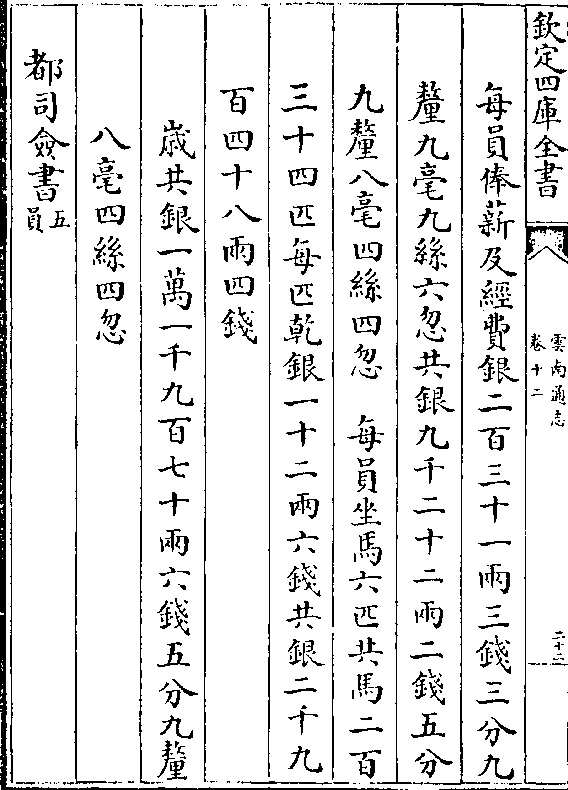 欽定四庫全書
雲南通志
卷十二
二十二
每員俸薪及經費銀二百三十一兩三錢三分九
釐九毫九絲六忽共銀九千二十二兩二錢五分
九釐八毫四絲四忽　每員坐馬六匹共馬二百
三十四匹每匹乾銀一十二兩六錢共銀二千九
百四十八兩四錢
歲共銀一萬一千九百七十兩六錢五分九釐
八毫四絲四忽
都司僉書五員